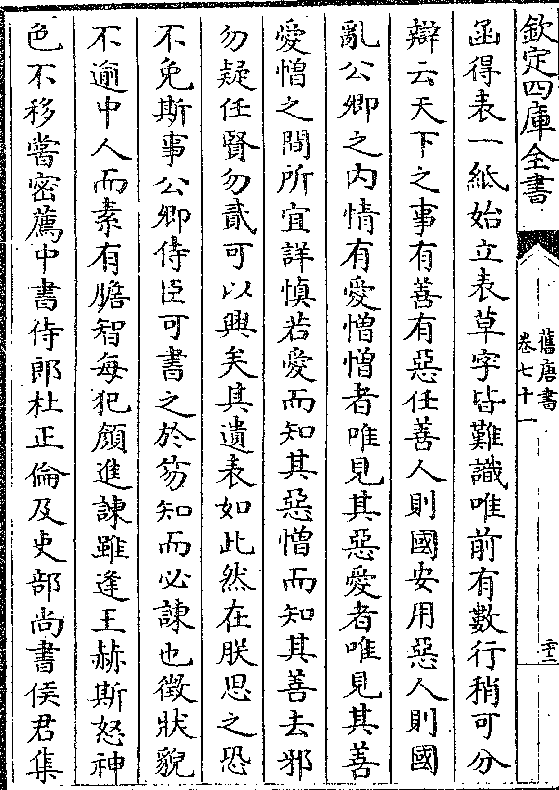 欽定四庫全書
舊唐書
卷七十一
函得表一紙始立表草字皆難識唯前有數行稍可分
辯云天下之事有善有惡任善人則國安用惡人則國
亂公卿之内情有愛憎憎者唯見其惡愛者唯見其善
愛憎之間所宜詳慎若愛而知其惡憎而知其善去邪
勿疑任賢勿貳可以興矣其遺表如此然在朕思之恐
不免斯事公卿侍臣可書之於笏知而必諫也徵狀貌
不逾中人而素有膽智每犯顔進諫雖逢王赫斯怒神
色不移嘗密薦中書侍郎杜正倫及吏部尚書侯君集